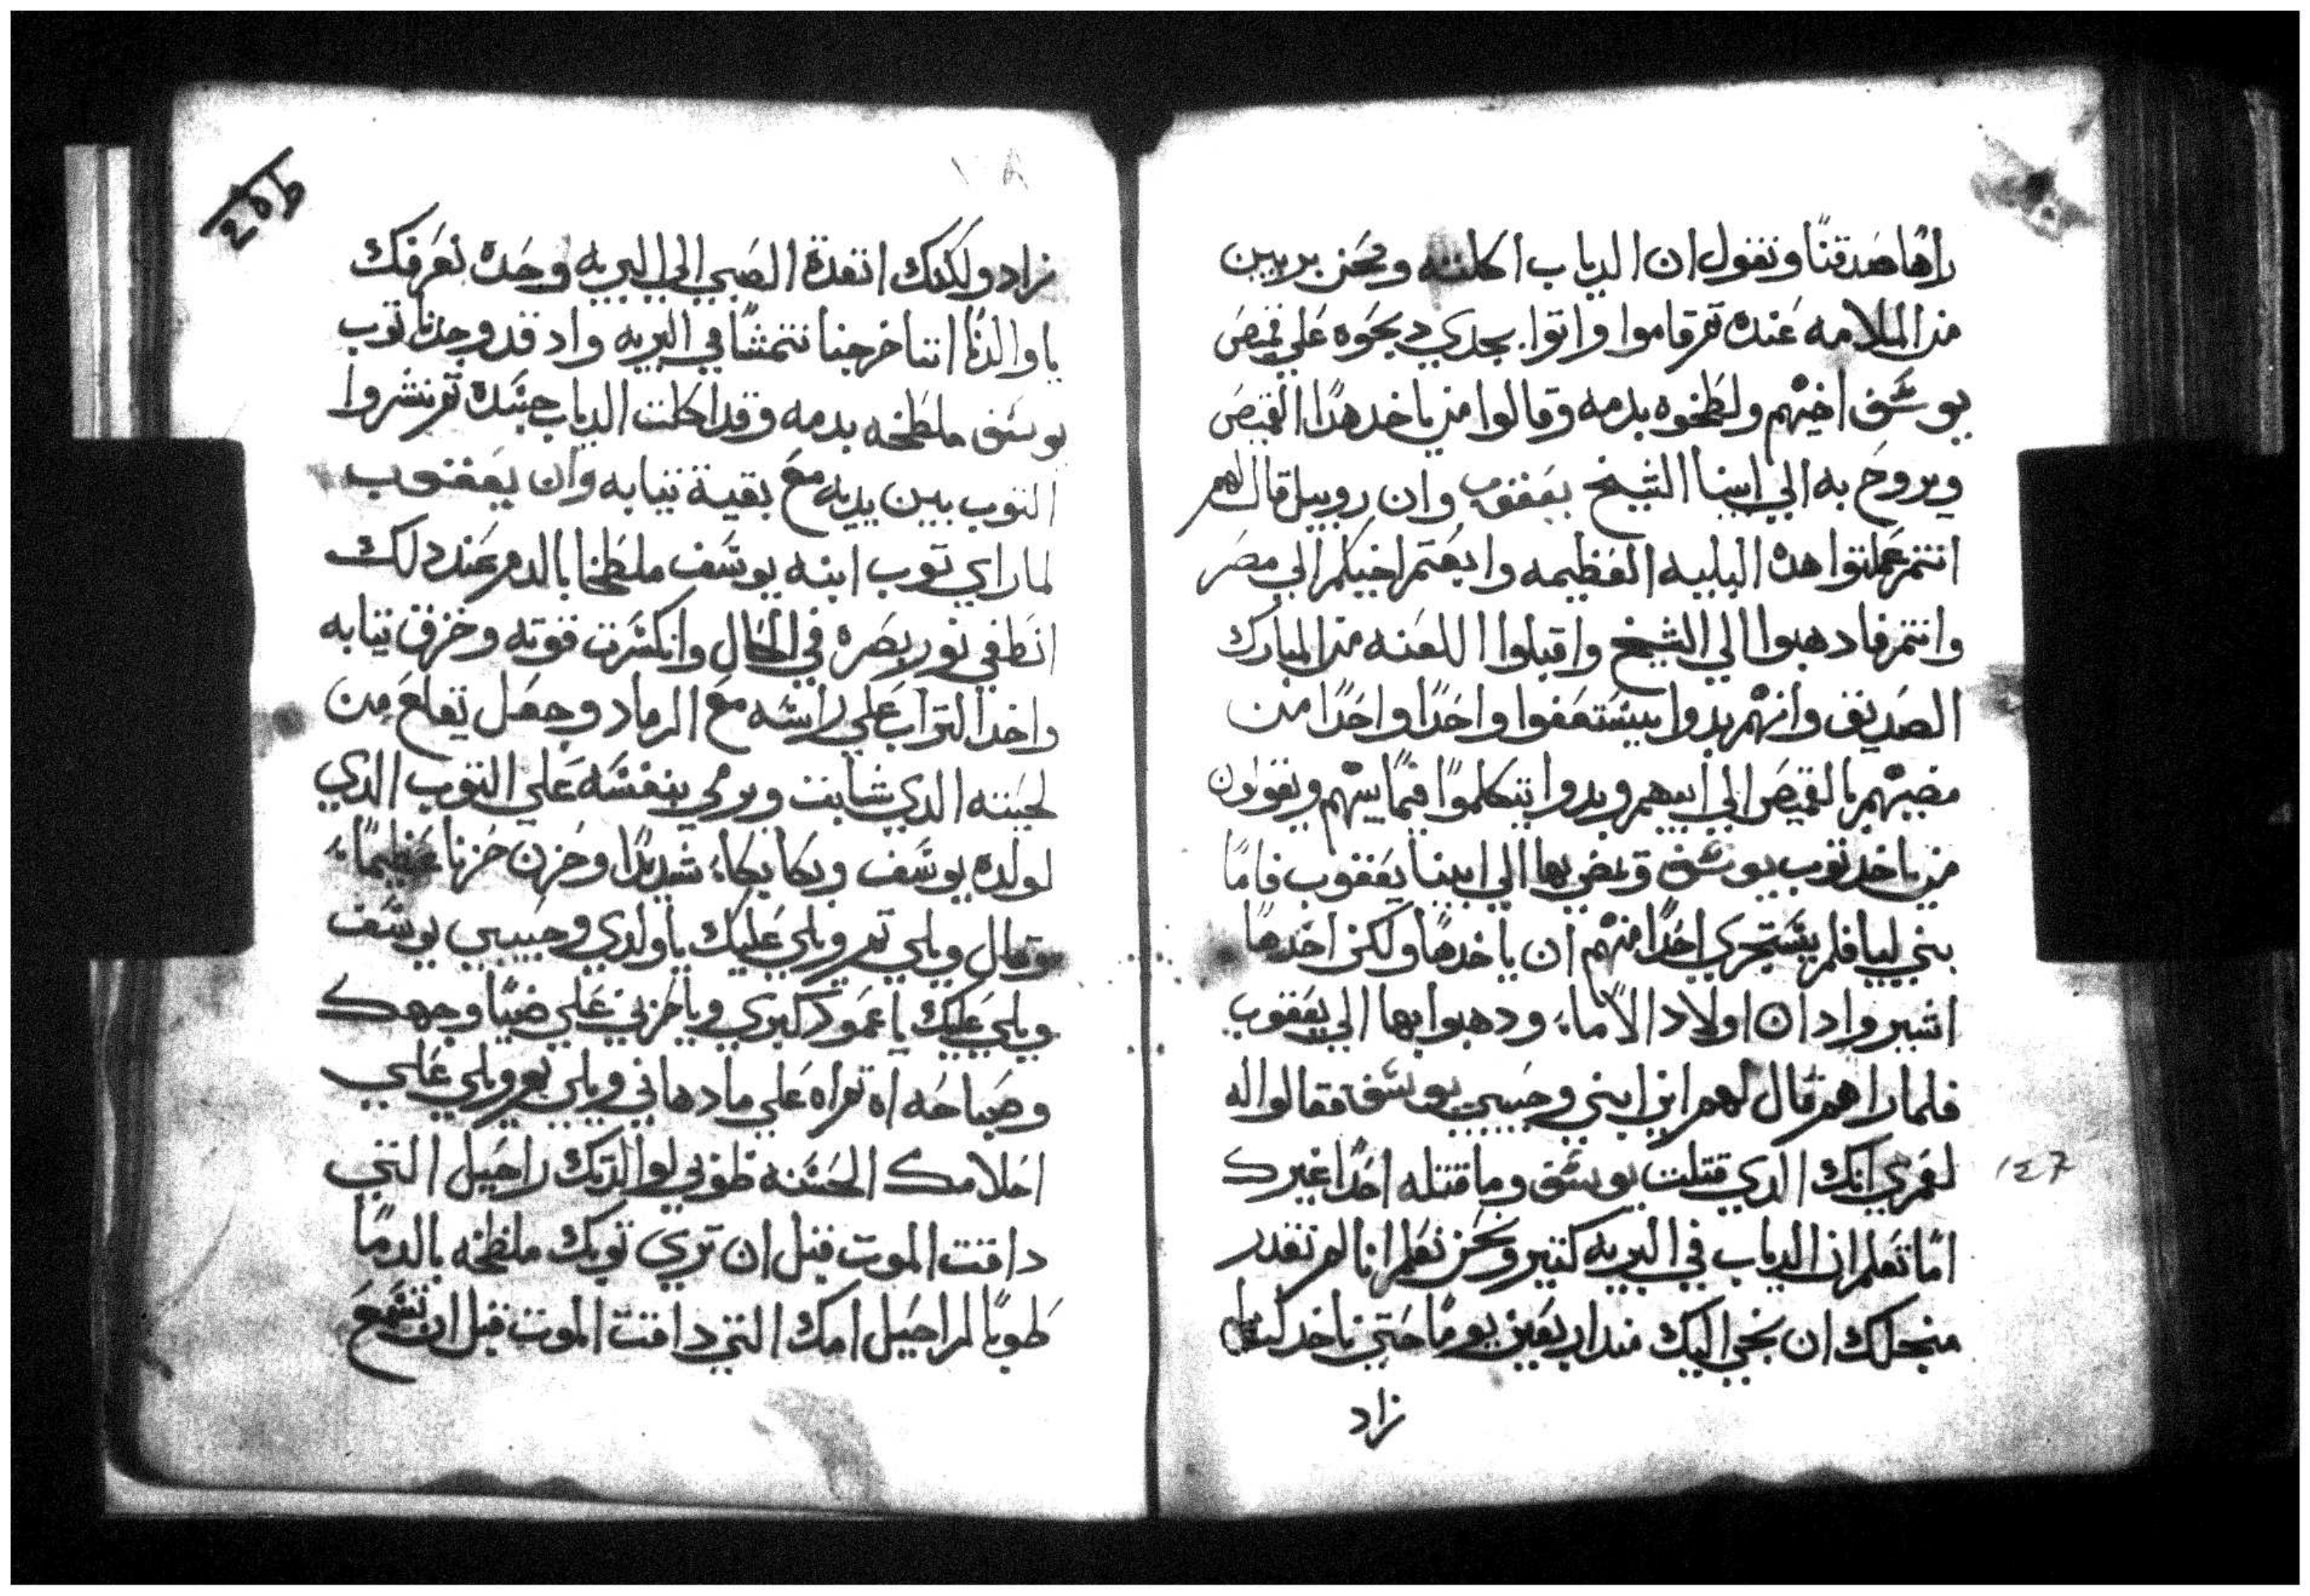 راها صدقنا ونقول ان الدياب اكلته ونحن بريين
من الملامه عنده تم قاموا واتوا بجدي دبحوه علي قميص
يوسف اخيهم ولطخوه بدمه وقالوا من ياخد هدا القميص
ويروح به الي ابينا الشيخ يعقوب وان روبيل قال لهم
انتم عملتوا هده البليه العظيمه وابعتم اخيكم الي مصر
وانتم فادهبوا الي الشيخ واقبلوا اللعنه من المبارك
الصديق وانهم بدوا يستعفوا واحدا واحدا من
مضيهم بالقميص الي ابيهم وبدوا يتكلموا فيما بينهم ويقولون
من ياخد توب يوسف ويمضي بها الي ابينا يعقوب فاما
بني ليا فلم يستجري احدا منهم ان ياخدها ولكن اخدها
اشير وادان اولاد الاماء ودهبوا بها الي يعقوب
فلما راهم قال لهم اين ابني وحبيبي يوسف فقالوا له
لعمري انك الدي قتلت يوسف وما قتله احدا غيرك
اما تعلم ان الدياب في البريه كتير ونحن نعلم انا لم نقدر
من نجلك ان نجي اليك مند اربعين يوما حتي ناخد لنا
زاد
١٤٧
زاد ولكنك انفدة الصبي الي البريه وحده نعرفك
يا والدنا اننا خرجنا نتمشا في البريه واد قد وجدنا توب
يوسف ملطخه بدمه وقد اكلت الدياب جسده تم نشروا
التوب بين يديه مع بقية تيابه وان يعقوب
لما راي توب ابنه يوسف ملطخا بالدم عند دلك
انطفي نور بصره في الحال وانكسرت قوته وخزق تيابه
واخد التراب علي راسه مع الرماد وجعل يقلع من
لحيته الدي شابت ويرمي بنفسه علي التوب الدي
لولده يوسف وبكا بكاء شديدا وحزن حزنا عظيما
وقال ويلي تم ويلي عليك يا ولدي وحبيبي يوسف
ويلي عليك يا عمود كبري ويا حزني علي ضيا وجهك
وصباحه اه تم اه علي ما دهاني ويلي تم ويلي علي
احلامك الحسنه طوبي لوالدتك راحيل التي
داقت الموت قبل ان تري توبك ملطخه بالدما
طوبا لراحيل امك التي داقت الموت قبل ان تسمع